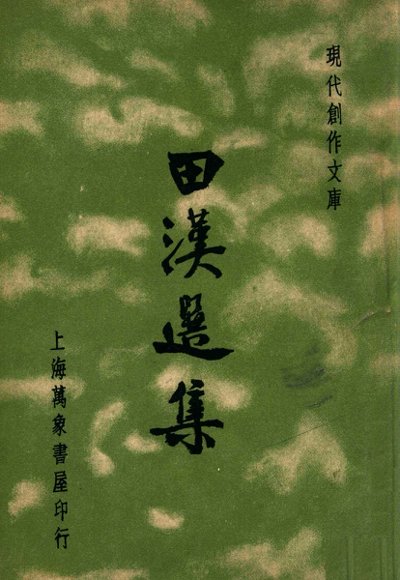 現代創作文庫
田漢選集
上海萬象書屋印行